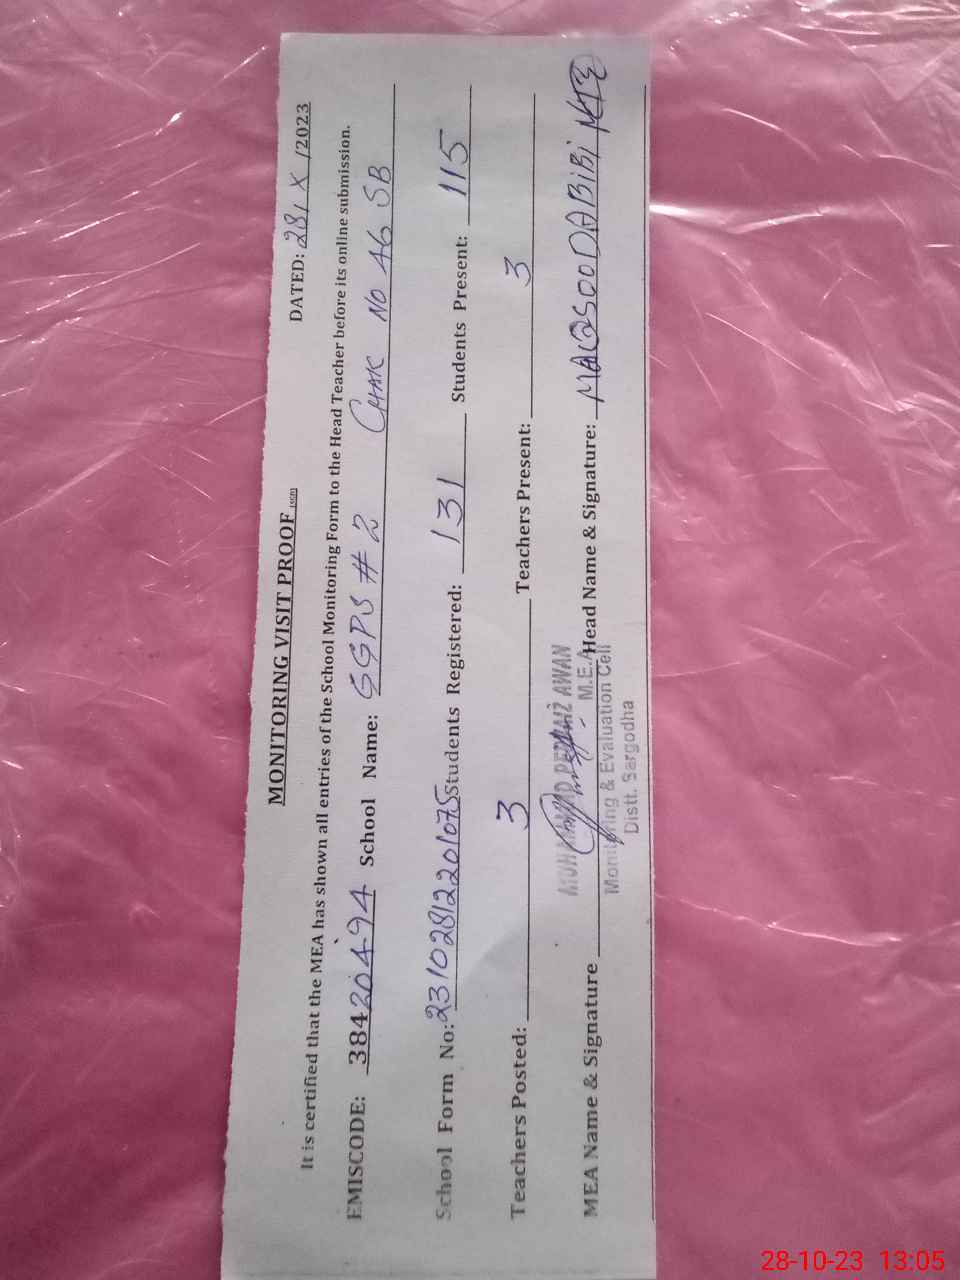 MONITORING VISIT PROOF
DATED: 28/ X /2023
It is certified that the MEA has shown all entries of the School Monitoring Form to the Head Teacher before its online submission.
EMISCODE: 38420494 School Name: GGPS # 2 CHAK NO 46 SB
School Form No: 23102812201075 Students Registered: 131 Students Present: 115
Teachers Posted: 3 Teachers Present: 3
MUHAMMAD PERVAIZ AWAN
M.E.A
MEA Name & Signature Head Name & Signature: MAQSOODA BiBi
Monitoring & Evaluation Cell
Distt. Sargodha
28-10-23 13:05